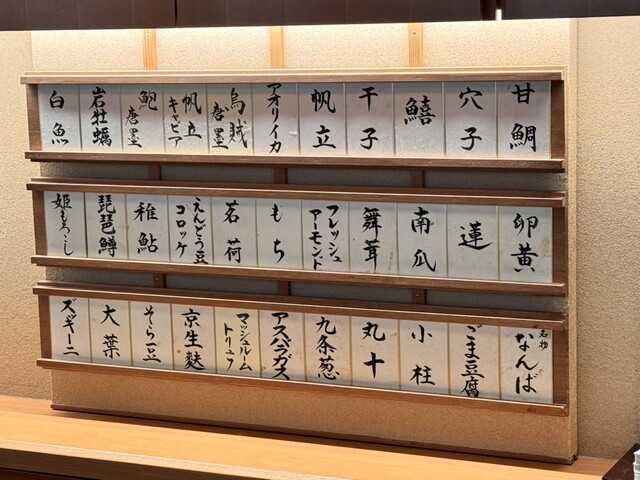 甘鯛
穴子
鱚
干子
帆立
アオリイカ
烏賊 唐墨
帆立 キャビア
鮑 唐墨
岩牡蠣
白魚
卵黄
蓮
南瓜
舞茸
フレッシュ アーモンド
もち
茗荷
えんどう豆 コロッケ
稚鮎
琵琶鱒
姫もろこし
名物 なんば
ごま豆腐
小柱
丸十
九条葱
アスパラガス
マッシュルーム トリュフ
京生麩
そら豆
大葉
ズッキーニ